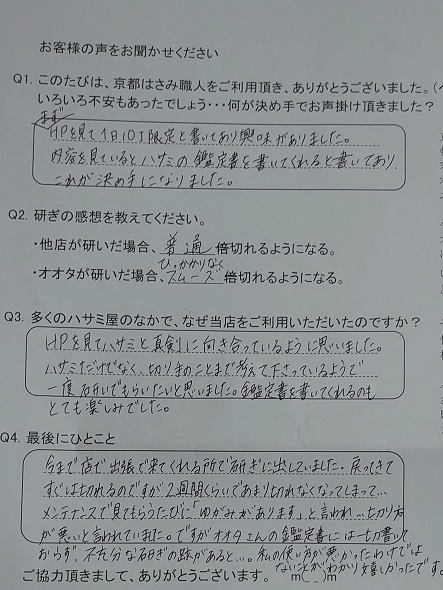 お客様の声をお聞かせください
Q1. このたびは、京都はさみ職人をご利用頂き、ありがとうございました。(
いろいろ不安もあったでしょう・・・何が決め手でお声掛け頂きました?
まず
HPを見て1日10丁限定と書いてあり興味がありました。
内容を見ているとハサミの鑑定書を書いてくれると書いてあり、
これが決め手になりました。
Q2. 研ぎの感想を教えてください。
・他店が研いだ場合、普通 倍切れるようになる。
ひっかかりなく
・オオタが研いだ場合、スムーズ 倍切れるようになる。
Q3. 多くのハサミ屋のなかで、なぜ当店をご利用いただいたのですか?
HPを見てハサミと真剣に向き合っているように思いました。
ハサミだけでなく、切り手のことまで考えて下さっているようで
一度研いでもらいたいと思いました。鑑定書を書いてくれるのも
とても楽しみでした。
Q4. 最後にひとこと
今まで店で出張で来てくれる所で研ぎに出していました。戻ってきて
すぐは切れるのですが2週間くらいであまり切れなくなってしまって…
メンテナンスで見てもらうたびに「ゆがみがあります」と言われ…切り方
が悪いと言われていました。ですがオオタさんの鑑定書には一切書いて
おらず、不充分な研ぎの跡があると…。私の使い方が悪かったわけでは
ないことがわかり嬉しかったです。
ご協力頂きまして、ありがとうございます。 m(_ _)m